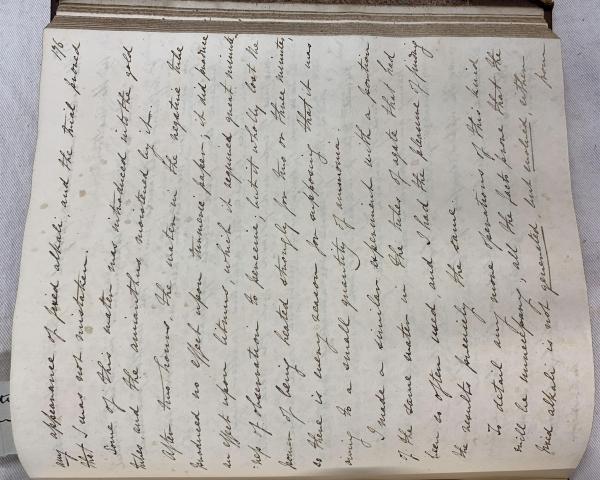 196
any appearance of fixed alkali and the trial proved
that I was not mistaken.
Some of this water was introduced into the gold
tubes and the amianthus moistened by it.
After two hours the water in the negative tube
produced no effect upon turmeric paper; it did produce
an effect upon litmus, which it required great minute-
ness of observation to perceive; but it wholly lost the
power of being heated strongly for two or three minutes,
so there is every reason for supposing that it was
owing to a small quantity of ammonia.
I made a similar experiment with a portion
of the same water in the tubes of agate that had
been so often used, and I had the pleasure of finding
the results precisely the same.
To detail any more operations of this kind
will be unnecessary; all the facts prove that the
fixed alkali is not generated, but evolved, either
from